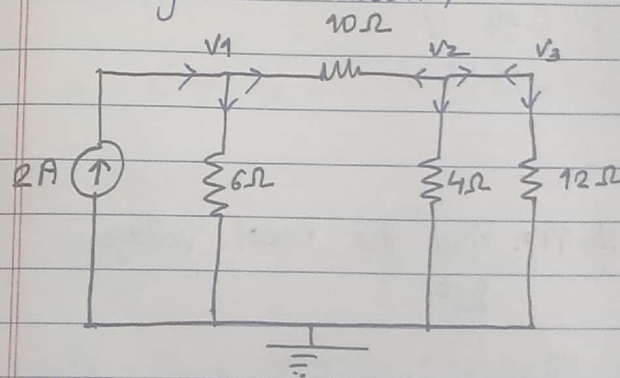 10Ω
V1 V2 V3
2A 6Ω 4Ω 12Ω